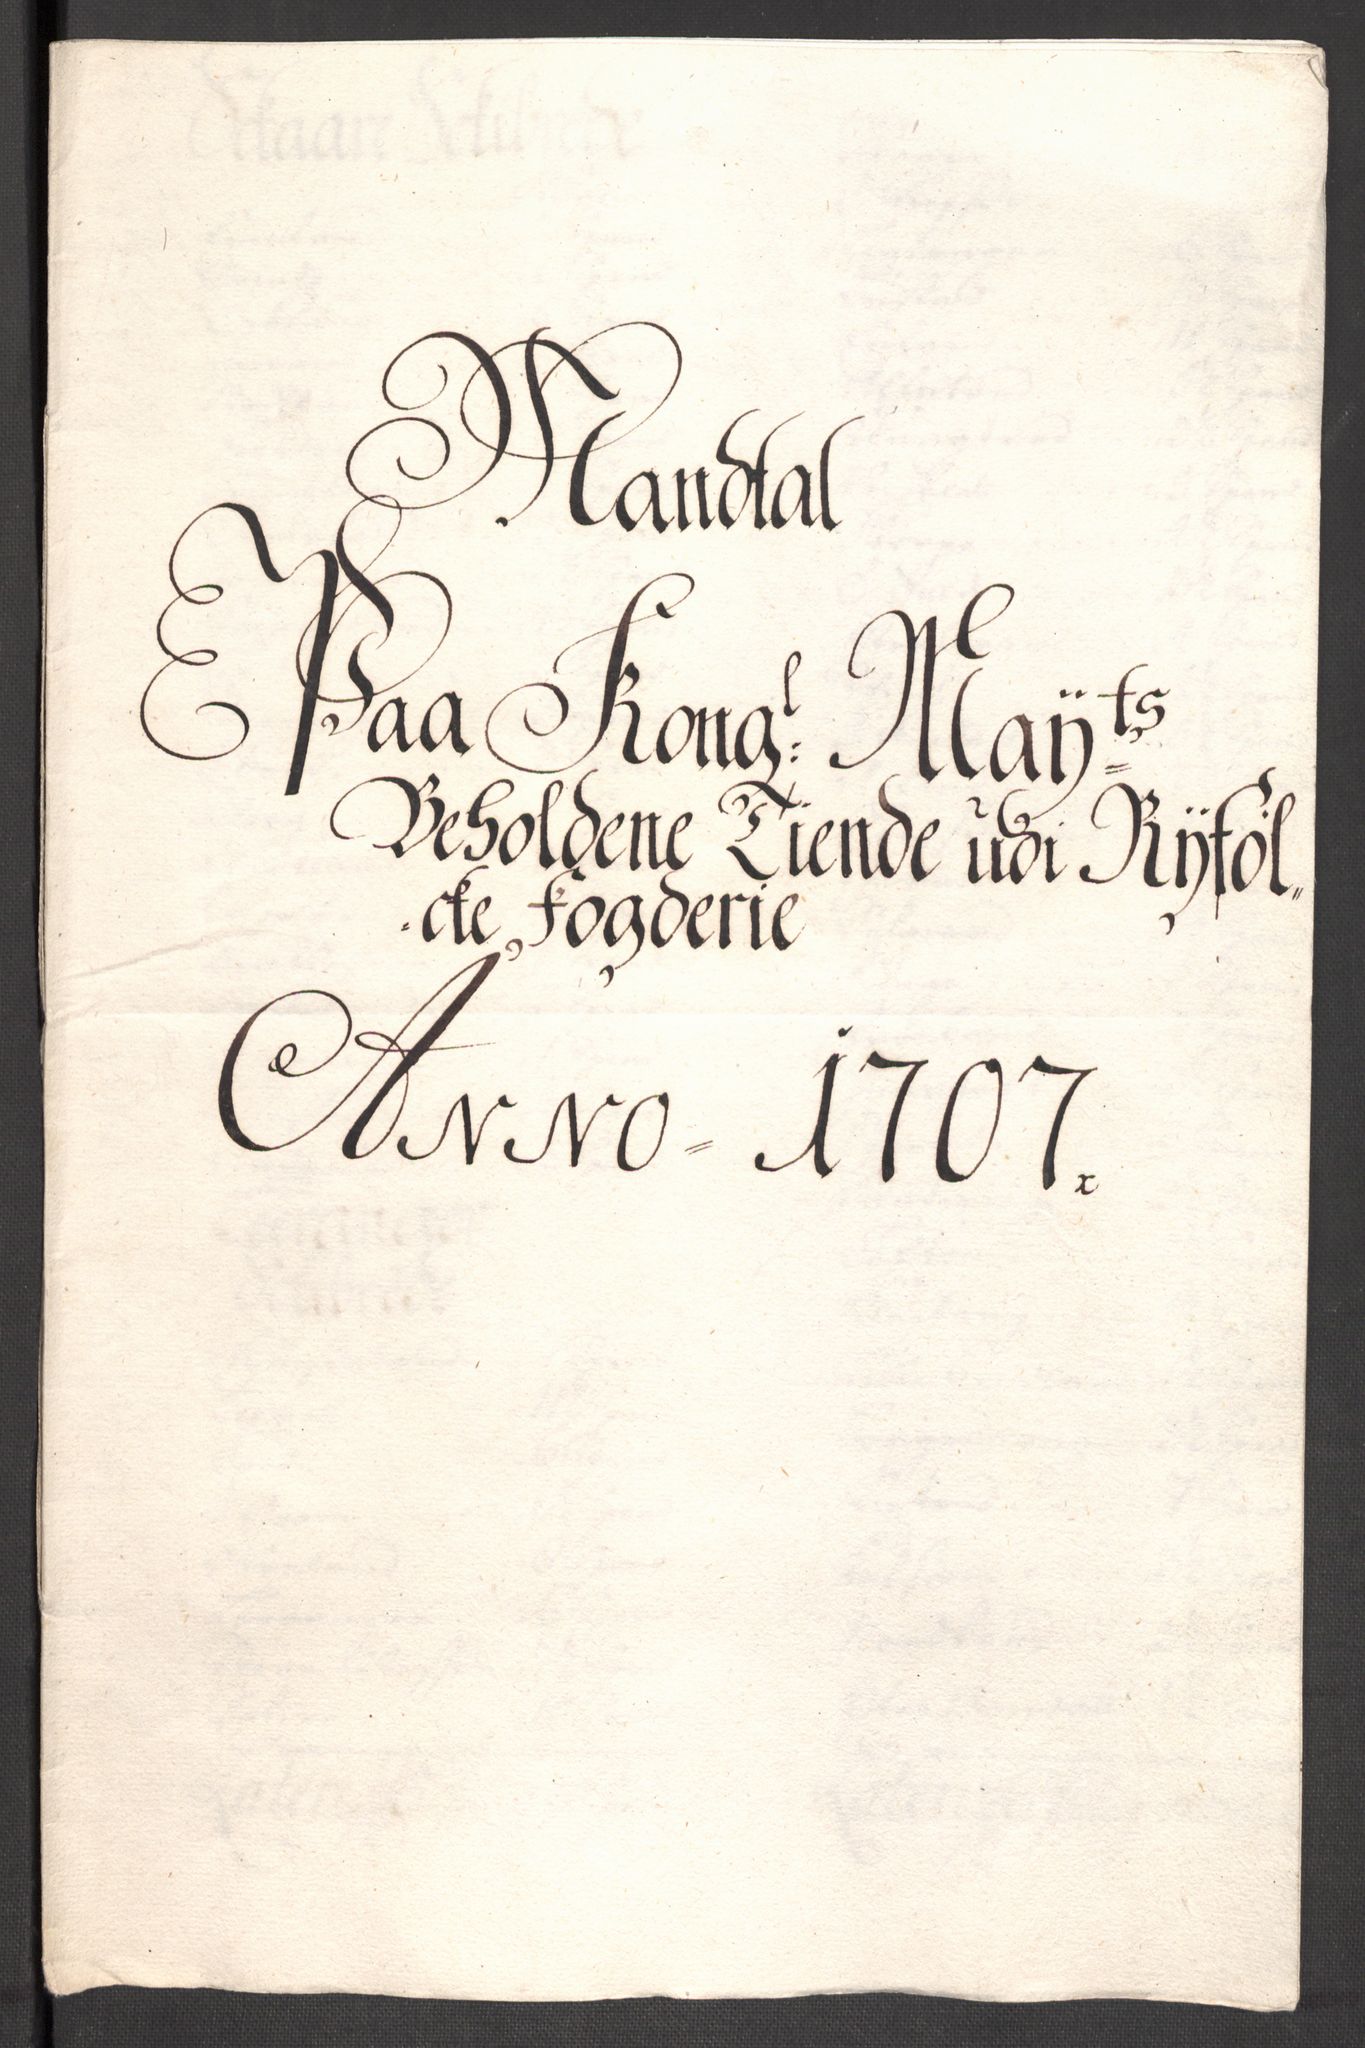 Mandtal
Paa Kongl: Maÿts
Beholdene Tiende udi Rÿföl„
„cke Fogderie
Anno = 1707.